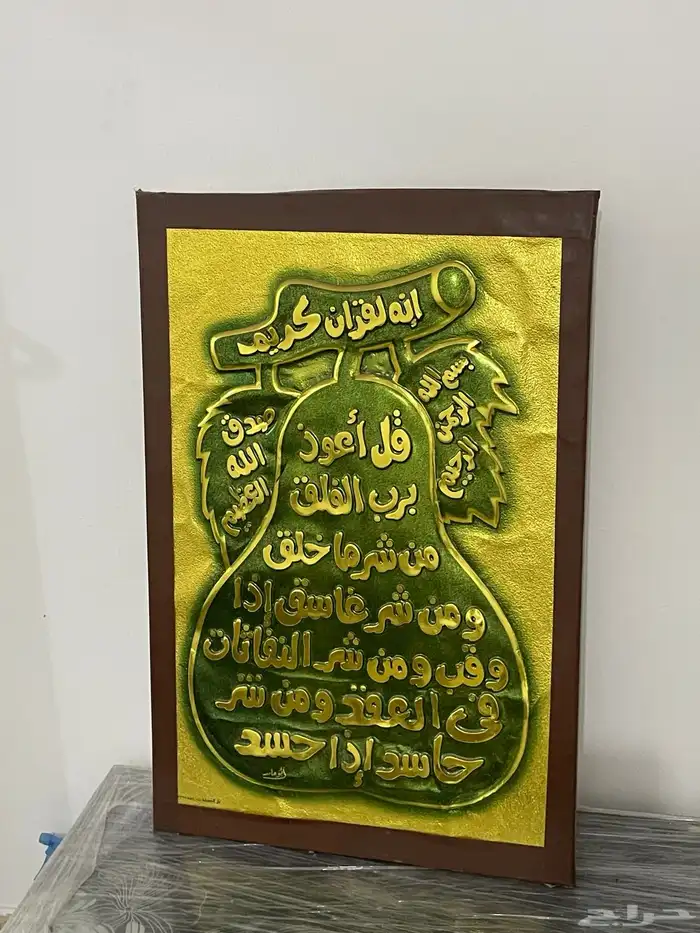 إنه لقرآن كريم
بسم الله
الرحمن
الرحيم
قل أعوذ
برب الفلق
من شر ما خلق
ومن شر غاسق إذا
وقب ومن شر النفاثات
في العقد ومن شر
حاسد إذا حسد
صدق
الله
العظيم
حراج